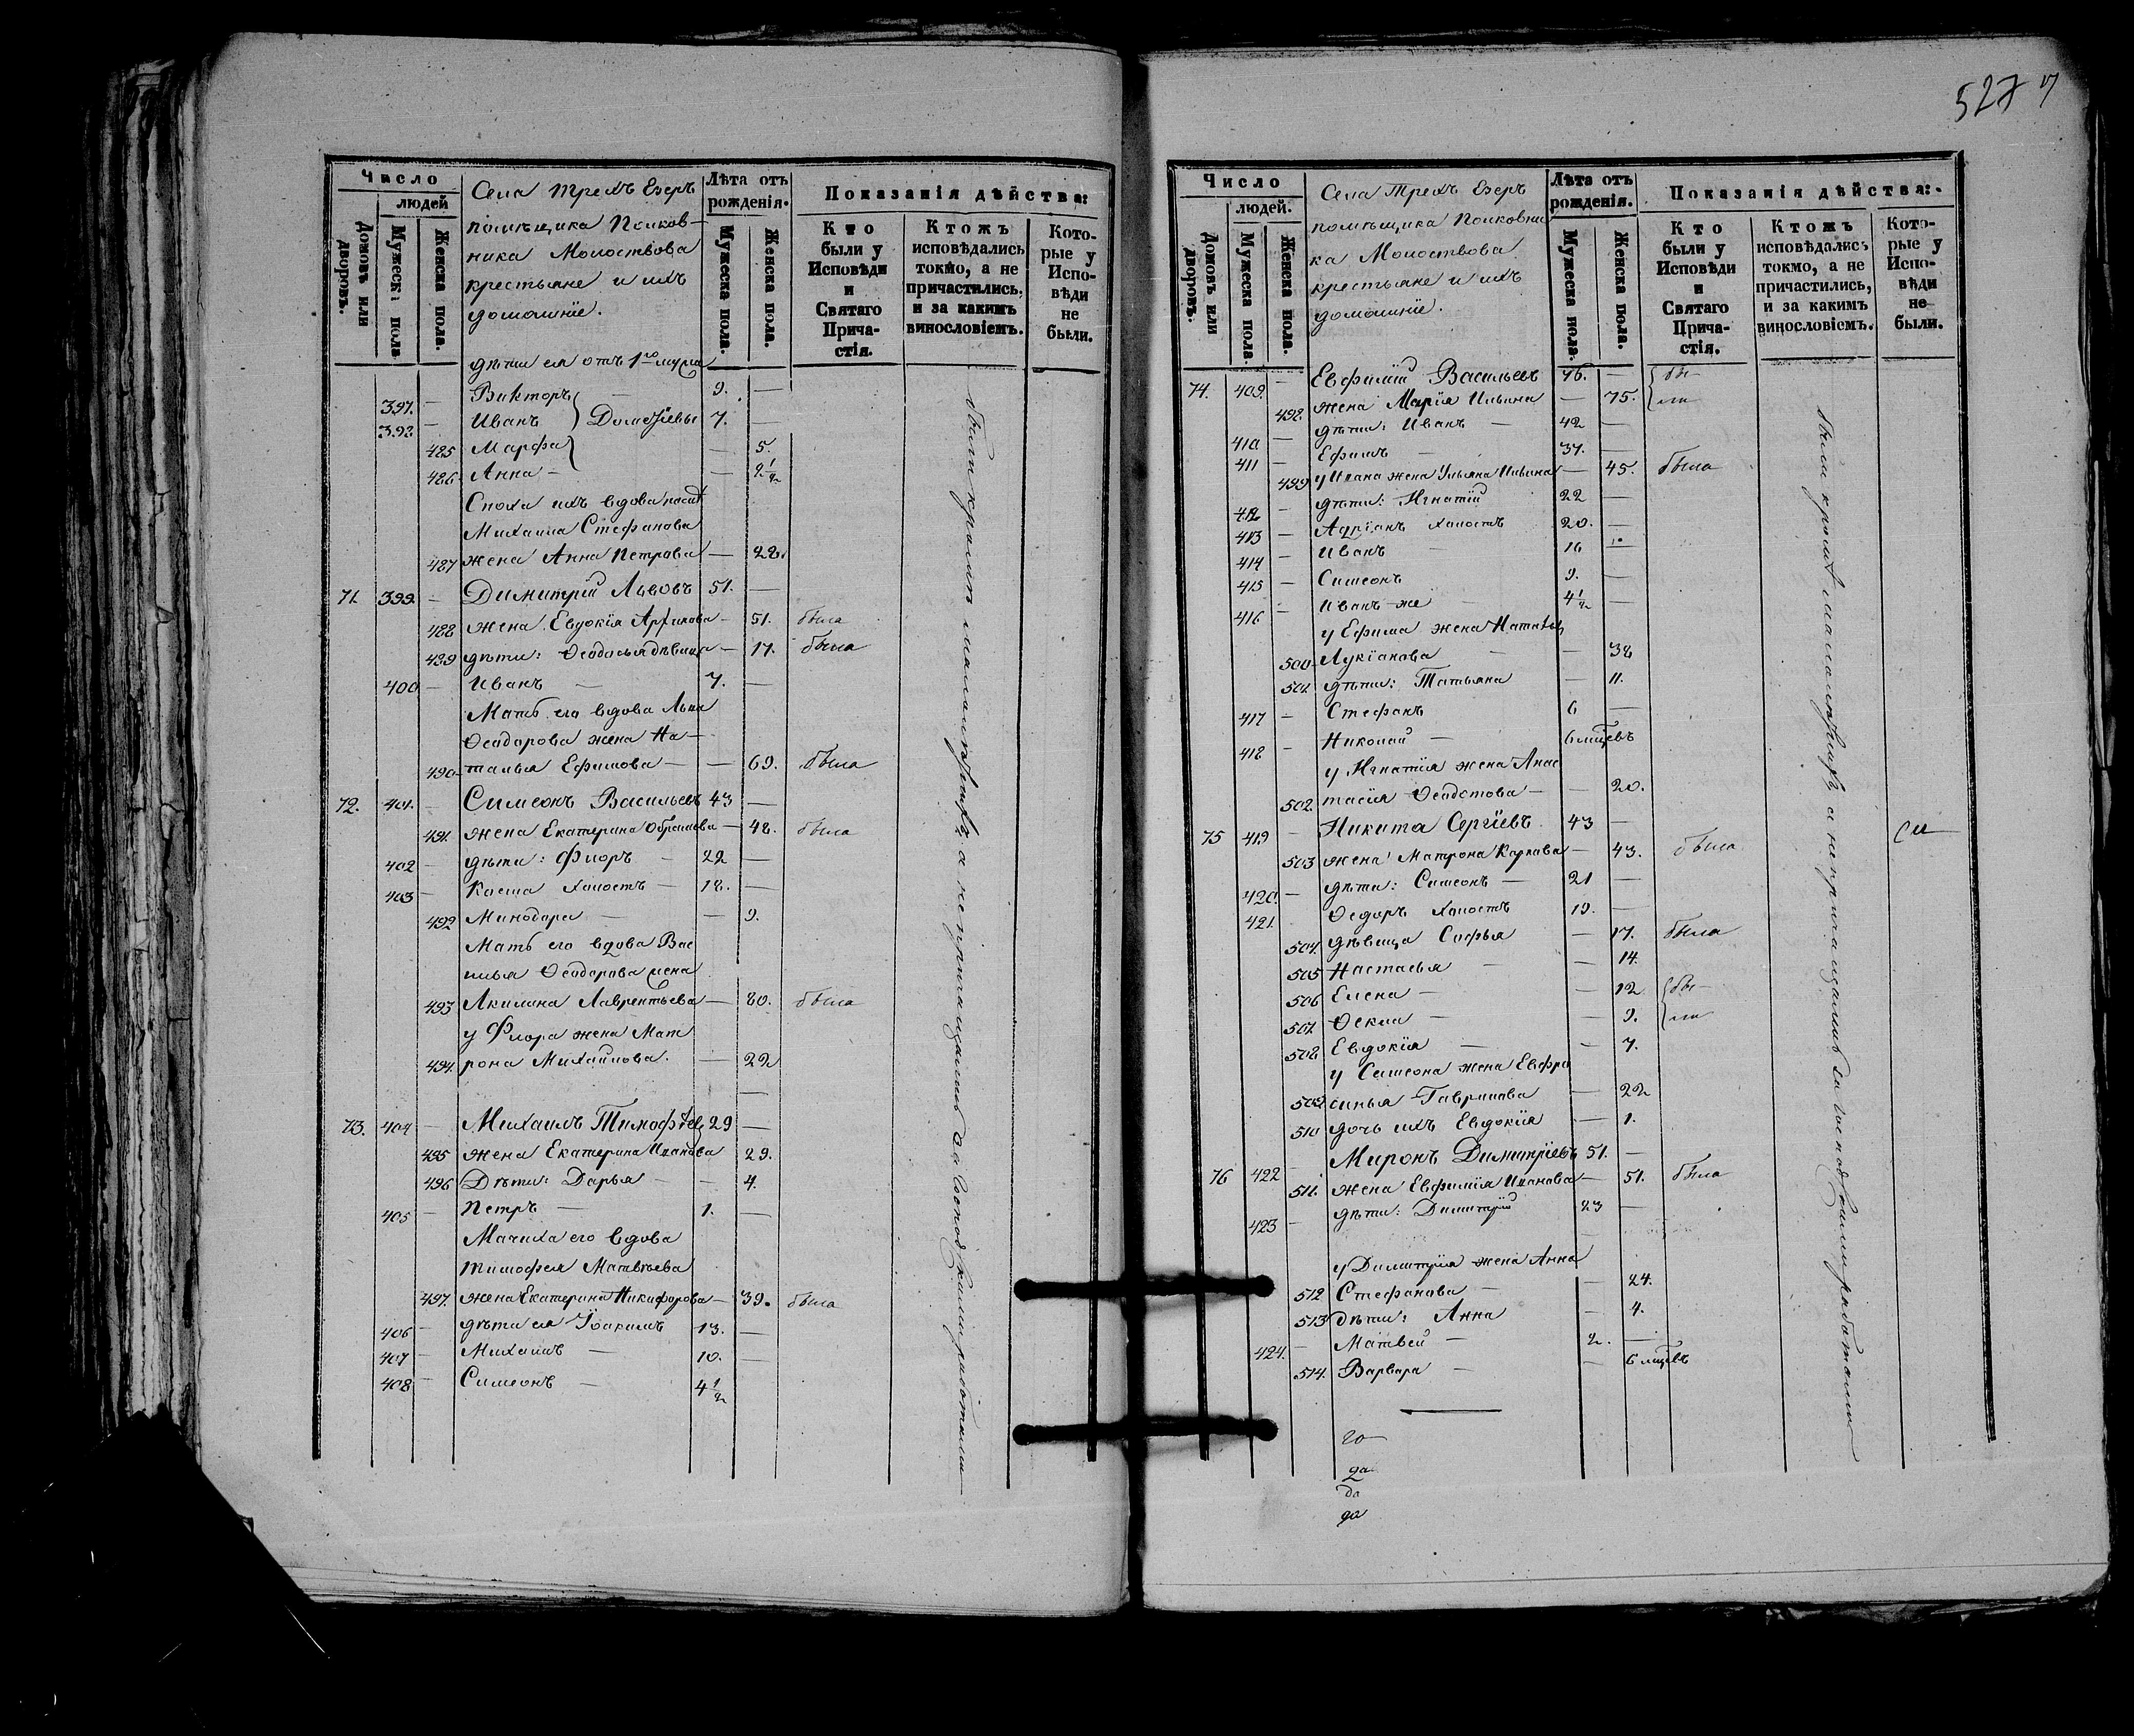 527
Число
людей
Домовъ или дворовъ.
Мужеска пола
Женска пола.
Села Трехъ Езеръ
помѣщика Полков-
ника Молоствова
крестьяне и ихъ
домашніе.
Лѣта отъ рожденія.
Мужеска пола.
Женска пола.
Показанія дѣйства:
Кто были у Исповѣди и Святаго Прича- стія.
Ктожъ исповѣдались токмо, а не причастились, и за какимъ винословіемъ.
Кото- рые у Испо- вѣди не были.
дѣти ея отъ 1го мужа
397. — Викторъ — 9. —
398 — Иванъ 7. —
485 Марфа — 5.
486 Анна — — 2 1/2
Сноха ихъ вдова
Михаила Стефанова
487 жена Анна Петрова — 28.
71. 399. — Димитрій Львовъ 51. —
488 жена Евдокія — 51. была
489 дѣти: Ѳеодосья дѣвица — 17. была
400 — Иванъ — 7. —
Мать его вдова Льва
Ѳеодорова жена На-
490 талья Ефимова — — 69. была
72. 401. — Симеонъ Васильевъ 43 —
491. жена Екатерина — 48. была
402 — дѣти: Флоръ — 22 —
403 — Косма холостъ — 18. —
492 Минодора — — 9.
Мать его вдова Вас
илья Ѳеодорова жена
493 Акилина Лаврентьева — 80. была
у Флора жена Мат
494. рона Михайлова. — 22
73. 404 — Михаилъ 29 —
495 жена Екатерина Иванова 29.
496 Дѣти: Дарья — — 4.
405 — Петръ — 1. —
Мачиха его вдова
Тимофея Матвѣева
497. жена Екатерина Никифорова — 39. была
406 — дѣти ея Іоакимъ 13. —
407 — Михаилъ — 10. —
408 — Симеонъ — 4 1/2
были кромѣ а не причащались за
Число
людей.
Домовъ или дворовъ.
Мужеска пола.
Женска пола.
Села Трехъ Езеръ
помѣщика Полковни
ка Молоствова
крестьяне и ихъ
домашніе.
Лѣта отъ рожденія.
Мужеска пола.
Женска пола.
Показанія дѣйства:
Кто были у Исповѣди и Святаго Прича- стія.
Ктожъ исповѣдались токмо, а не причастились, и за какимъ винословіемъ.
Кото- рые у Испо- вѣди не были.
74. 409. — Евфимій Васильевъ 76. — бы-
498. жена Марія Ильина — 75. ли
410. — дѣти: Иванъ — 42 —
411 — Ефимъ — 37. —
499 у Ивана жена Ульяна Ильина — 45. была
412 — дѣти: Игнатій 22 —
413 — Адріанъ холостъ 20. —
414 Иванъ — 16 —
415 — Симеонъ 9. —
416 — Иванъ же 4 1/2 —
у Ефима жена
500 Лукіанова — — 38
501. дѣти: Татьяна — 11.
417 — Стефанъ 6 —
418 — Николай — 6 мцевъ
у Игнатія жена Анас
502. тасія — — 20.
75 419 — Никита Сергіевъ 43 —
503 жена Матрона Карпова — 43. была
420. — дѣти: Симеонъ — 21 —
421. Ѳедоръ холостъ 19. —
504. дѣвица Софья — 17. была
505 Настасья — — 14.
506 Елена — — 12 бы-
507. Ѳекла — — 9. ли
508 Евдокія — — 7.
у Симеона жена Евфро
509 синья Гаврилова — 22
510 дочь ихъ Евдокія — 1.
76 422 — Миронъ Димитріевъ 51. —
511. жена Евфимія Иванова — 51. была
423 — дѣти: Димитрій 23 —
у Димитрія жена Анна
512 Стефанова — — 24.
513 дѣти: Анна — 4.
424. — Матвей — 2. —
514. Варвара — — 6 мцевъ
были кромѣ а не причащались
го
да
до
да